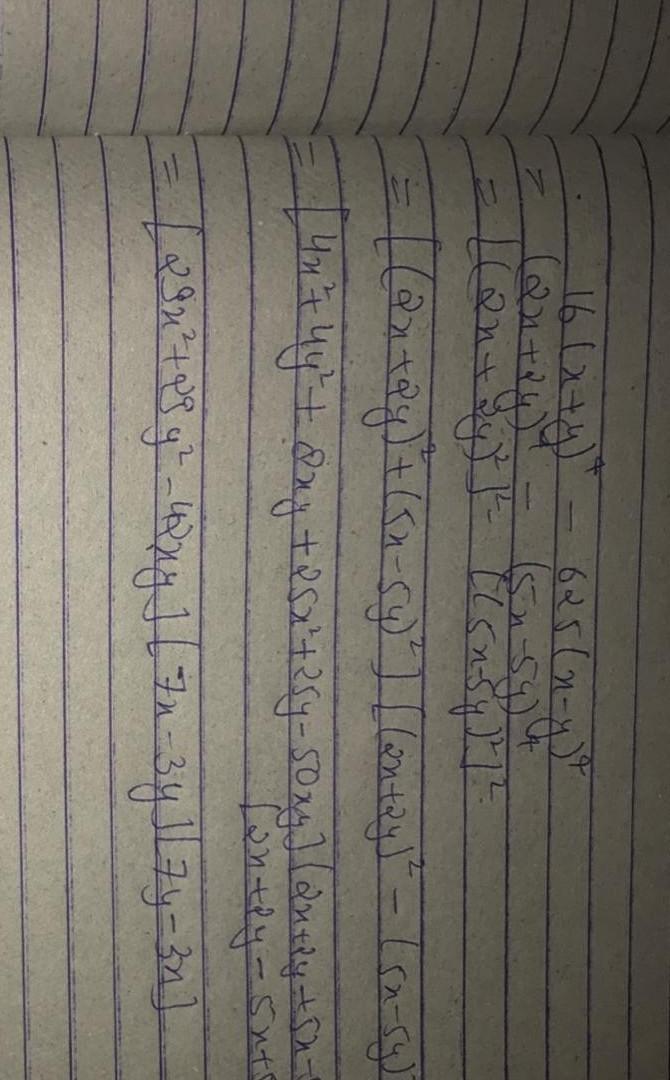 16(x+y)⁴ - 625(x-y)⁴
= (2x+2y)⁴ - (5x-5y)⁴
= [(2x+2y)²]² - [(5x-5y)²]²
= [(2x+2y)²+(5x-5y)²] [(2x+2y)² - (5x-5y)
= [4x²+4y²+8xy+25x²+25y-50xy] (2x+2y+5x-
[2x+2y-5x+
= [29x²+29y²-42xy] [7x-3y] [7y-3x]